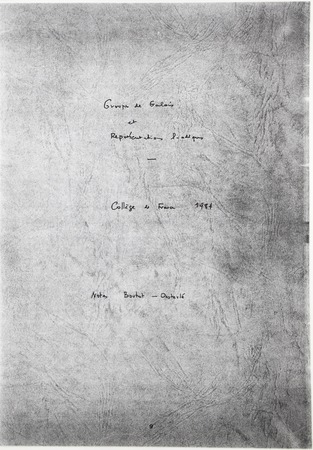 Groupes de Galois
et
Représentations l-adiques
Collège de France 198
Notes Boutot -